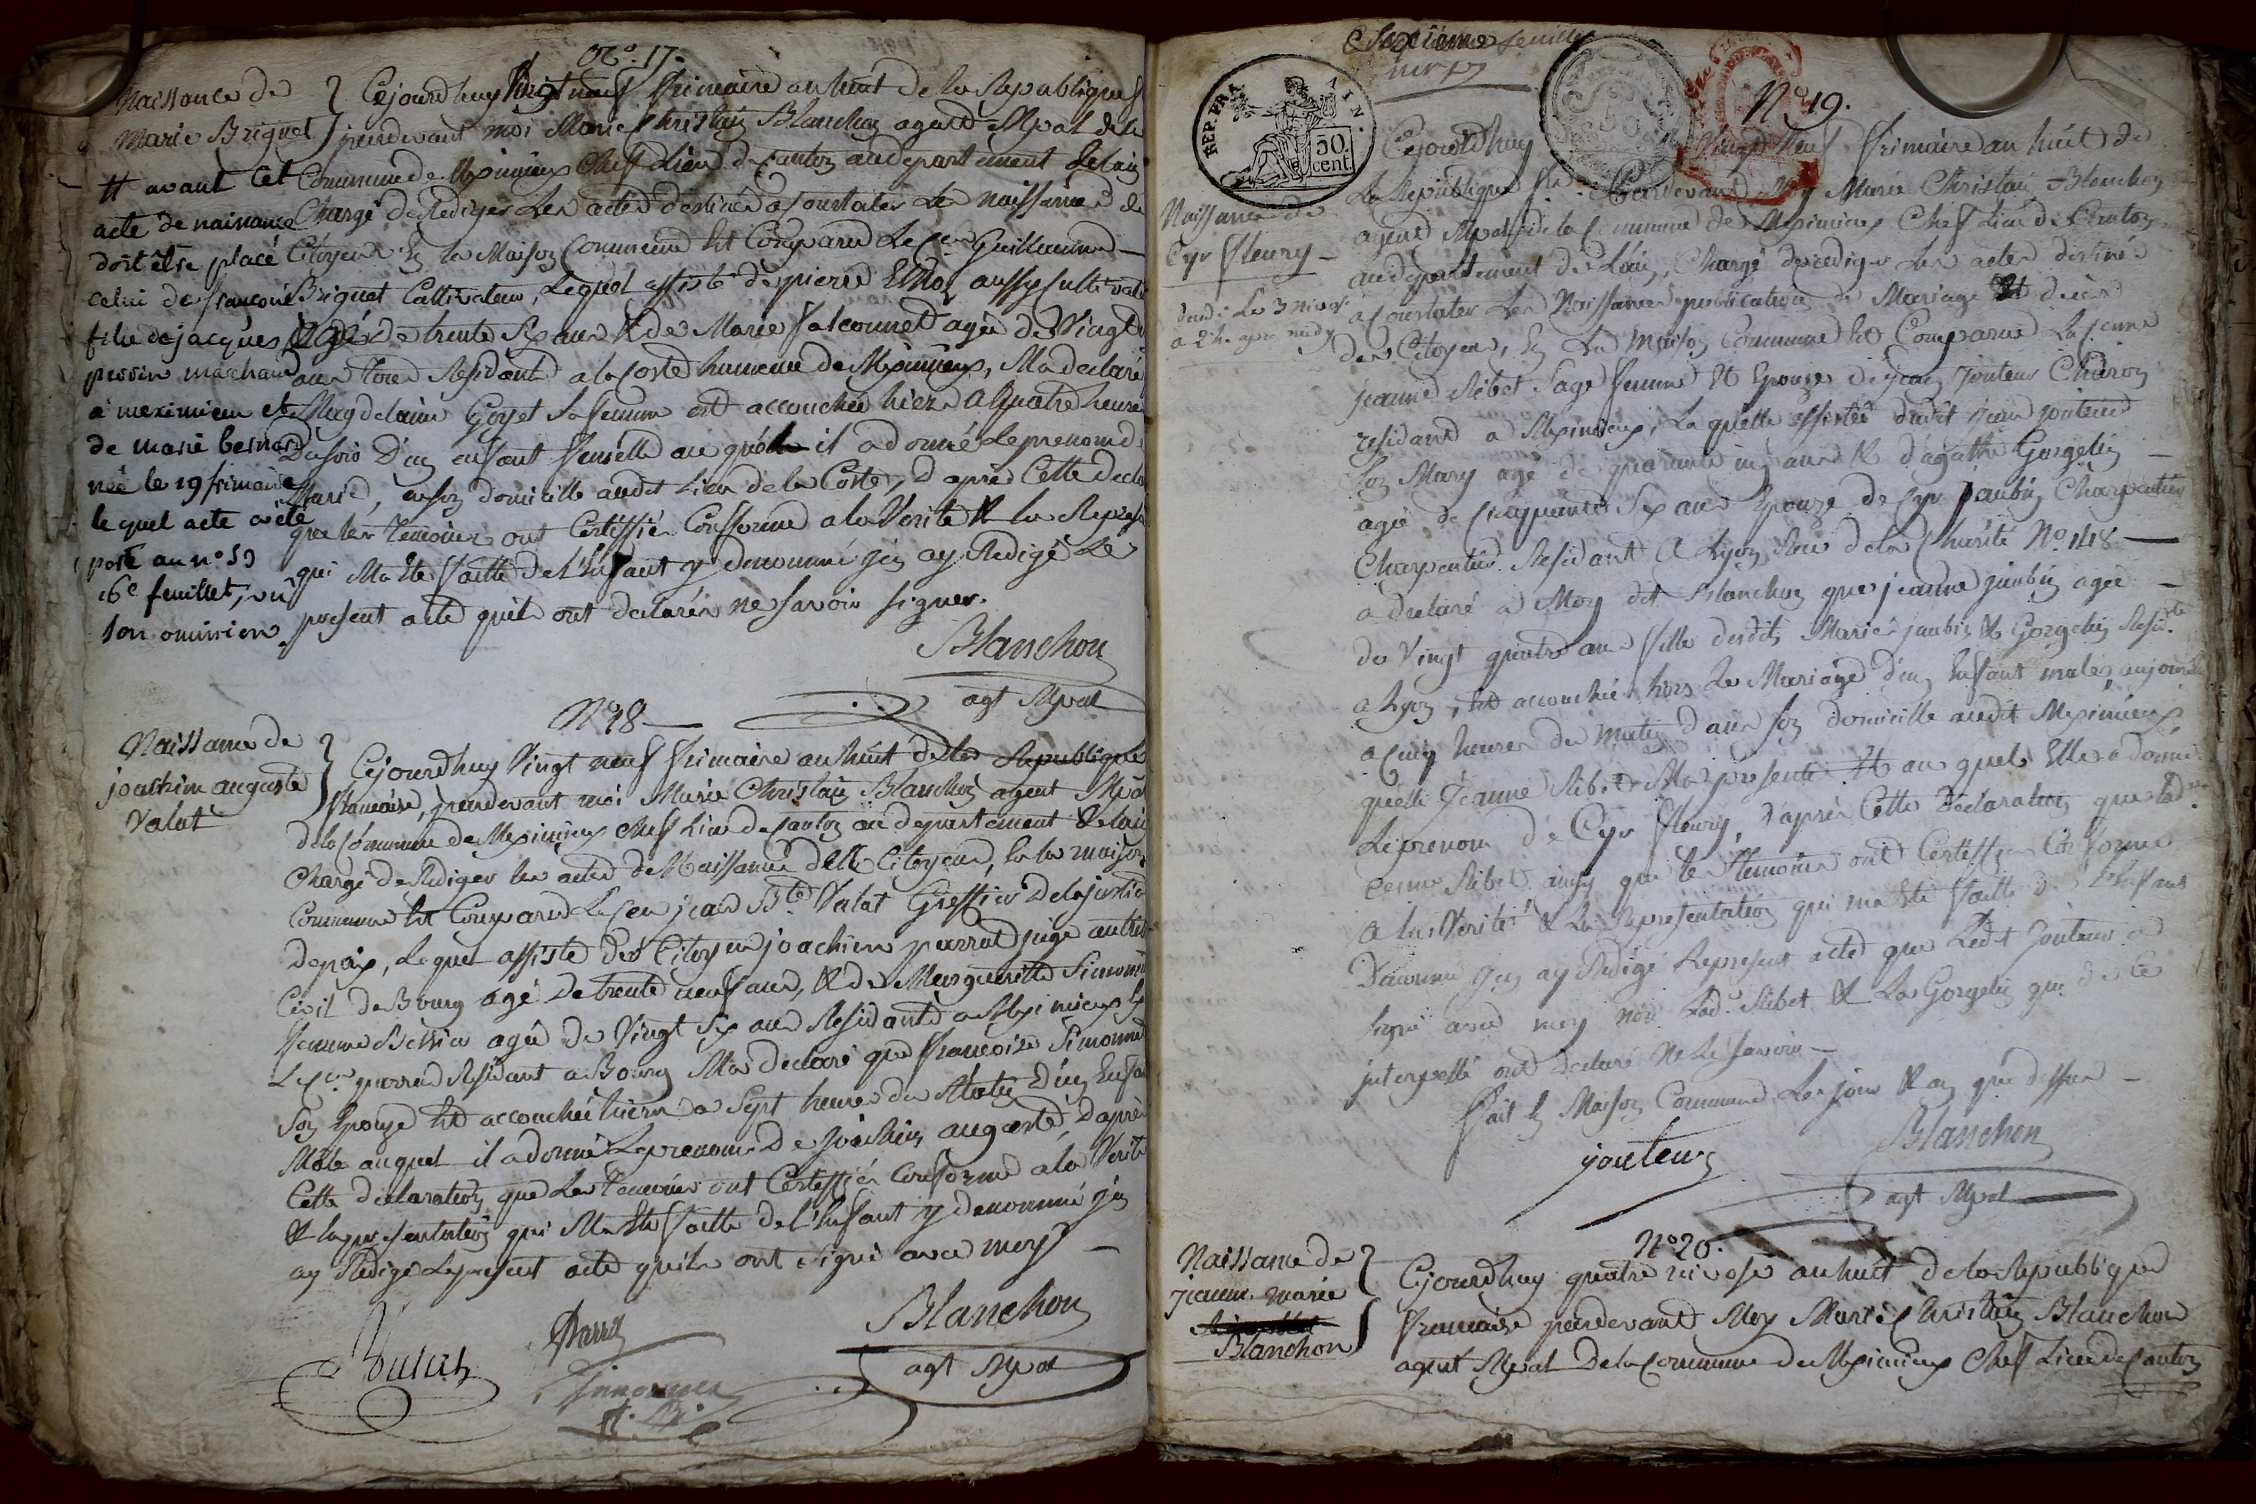 N°. 17.
Naissance de
Marie Briguet
# avant cet
acte de naissance
doit être placé
celui de françoise
fille de jacques
perrin marchand
à meximieux et
de marie bernard
née le 19 frimaire
le quel acte a été
porté au n° 59
16e feuillet, vû
son omission
Cejourdhuy Vingt neuf frimaire an huit de la Republique
pardevant moi Marie Christain Blanchon agent Mpal de la
Commune de Meximieux Chef Lieu de Canton au departement de Lain
Chargé de Rediger Les actes destinés a Constater Les Naissances de
Citoyens En la Maison Commune Est Comparu Le Cen Guillaume
Briguet Cultivateur, Lequel assisté de pierre aussy Cultivateur
agé de trente six ans & de Marie falconnet agée de Vingt
ans tous Residants a la Coste hameau de Meximieux, Ma declaré
Magdelaine Goyet Sa femme est accouchée hier a Quatre heures
Du soir D'un enfant femelle au quel il a donné Le prenom de
Marie, en son domicille audit Lieu de la Coste, D'apres Cette declaration
que les temoins ont Certiffié Conforme a la Verité & la Representation
qui Ma Eté faitte de l'Enfant y denommé j'en ay Redigé Le
present acte qu'ils ont declarés ne savoir signer.
Blanchon
agt Mpal
N° 18
Naissance de
joachim auguste
Valat
Cejourdhuy Vingt neuf frimaire an huit de la Republique
francaise, pardevant moi Marie Christain Blanchon agent Mpal
de la Commune de Meximieux chef Lieu de Canton au departement de Lain
Chargé de Rediger les actes de Naissance des Citoyens, En la maison
Commune Est Comparu Le Cen jean Bte Valat Greffier de la justice
de paix, Lequel assisté des Citoyens joachim parrat juge au tribunal
Civil de Bourg agé de trente neuf ans, & de Marguerite Simonnet
femme agée de Vingt Six ans Residante a Meximieux &
Le Cen parrat Residant a Bourg Ma declaré que francoise Simonnet
Son Epouze Est accouchée hier a Sept heures du Matin D'un Enfant
Male auquel il a donné Le prenom de joachim auguste, D'apres
Cette declaration que les temoins ont Certiffié Conforme a la Verité
& la presentation qui Ma Eté faitte de l'Enfant y denommé j'en
ay Redigé Le present acte qu'ils ont signé avec moy
Valat
Parrat
Simonnet
Blanchon
agt Mpal
Septieme feuillet
REP. FRA.
AIN.
50
cent
N° 19.
Naissance de
Cyr fleury
a 2 h. apres midy
Cejourdhuy Vingt Neuf frimaire an huit de
La Republique fse Pardevant Moy Marie Christain Blanchon
agent Mpal de la Commune de Meximieux Chef Lieu de Canton
au departement de Lain, Chargé de rediger Les actes destinés
a Constater Les Naissances publication de Mariage Et deces
des Citoyens, En La Maison Commune Est Comparue La Cenne
jeanne Ribet Sage femme Et Epouze de jean jouteur Charon
residant a Meximieux, La quelle assistée dudit jean jouteur
Son Mary agé de quarante un ans & d'agathe Gorgelin
agée de Cinquante Six ans Epouze de Cyr jaubin Charpentier
Charpentier Residant A Lyon Rue de la Charité N° 148
a declaré a Moy dit Blanchon que jeanne jaubin agée
de Vingt quatre ans fille desdits Mariés jaubin & Gorgelin Residte
a Lyon, Est accouchée hors Le Mariage d'un Enfant male aujourdhuy
a Cinq heures du Matin dans son domicille audit Meximieux
quelle jeanne Ribet Ma presenté Et au quel Elle a donné
Le prenom de Cyr fleury, D'apres Cette Declaration que lade
Cenne Ribet ainsy que les temoins ont Certiffié Conforme
a la Verité & La Representation qui ma Eté faitte de l'Enfant
Denommé j'en ay Redigé Le present acte que Ledit jouteur a
signé avec moy non Lade Ribet & La Gorgelin qui de ce
interpellé ont declaré Ne Le Savoir
fait En Maison Commune Les jour & an que dessus
jouteur
Blanchon
agt Mpal
N° 20.
Naissance de
jeanne marie
Blanchon
Cejourdhuy quatre nivose an huit de la Republique
francaise pardevant Moy Marie Christain Blanchon
agent Mpal De la Commune de Meximieux Chef Lieu de Canton